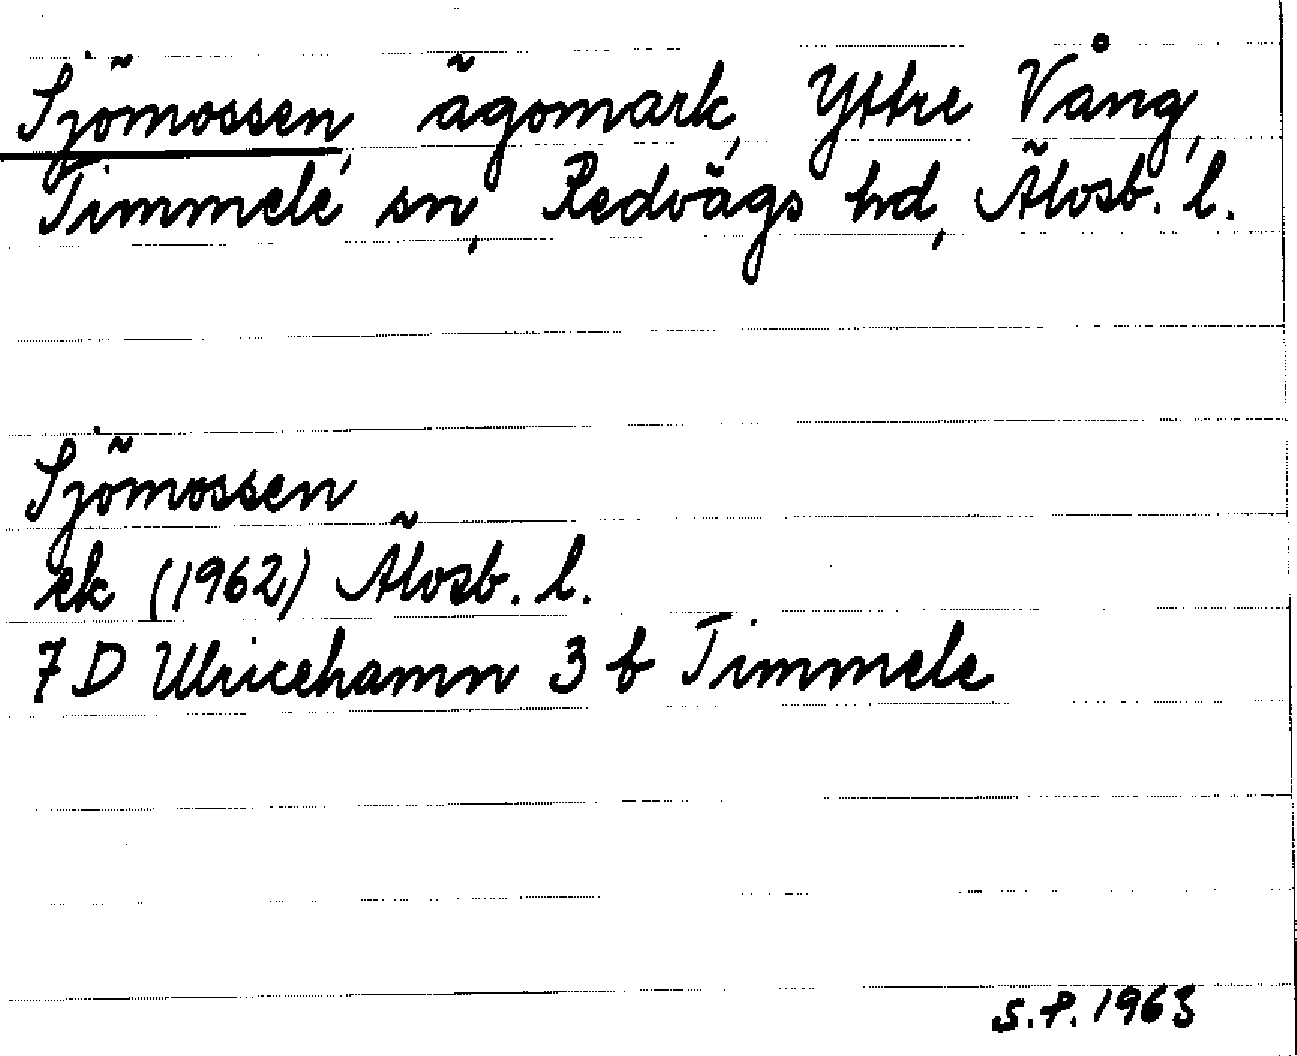 Sjömossen, ägomark, Yttre Vång,
Timmele sn, Redvägs hd, Älvsb. l.
Sjömossen
ek (1962) Älvsb. l.
7 D Ulricehamn 3 b Timmele
S.P. 1963